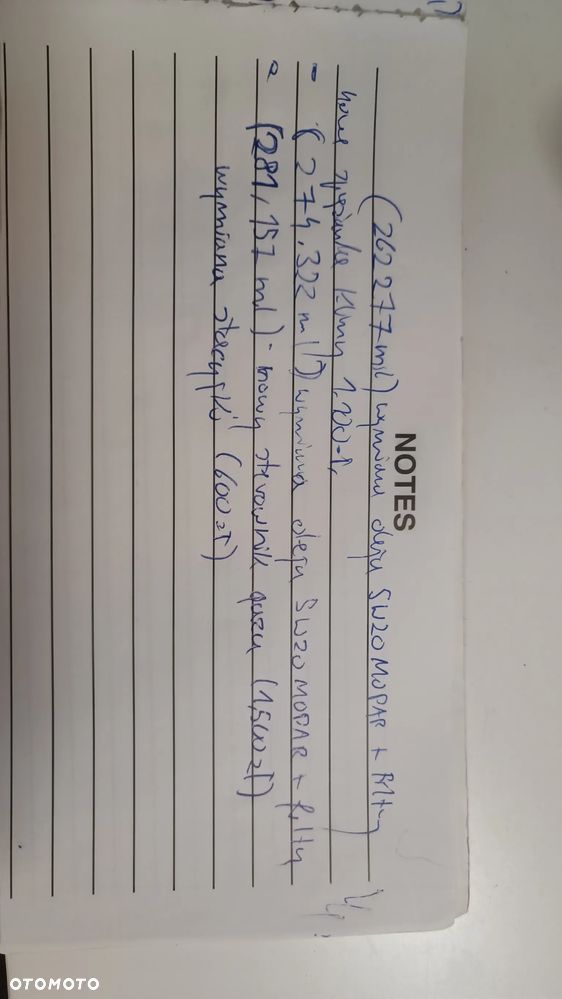 NOTES
(262277 mil) wymiana oleju 5W20 MOPAR + filtry
nowa sprężarka klimy 1.100zł,
- (274.322 mil) wymiana oleju 5W20 MOPAR + filtry
- (281,157 mil) - nowy sterownik gazu (1,500zł)
wymiana stacyjki (600zł)
OTOMOTO